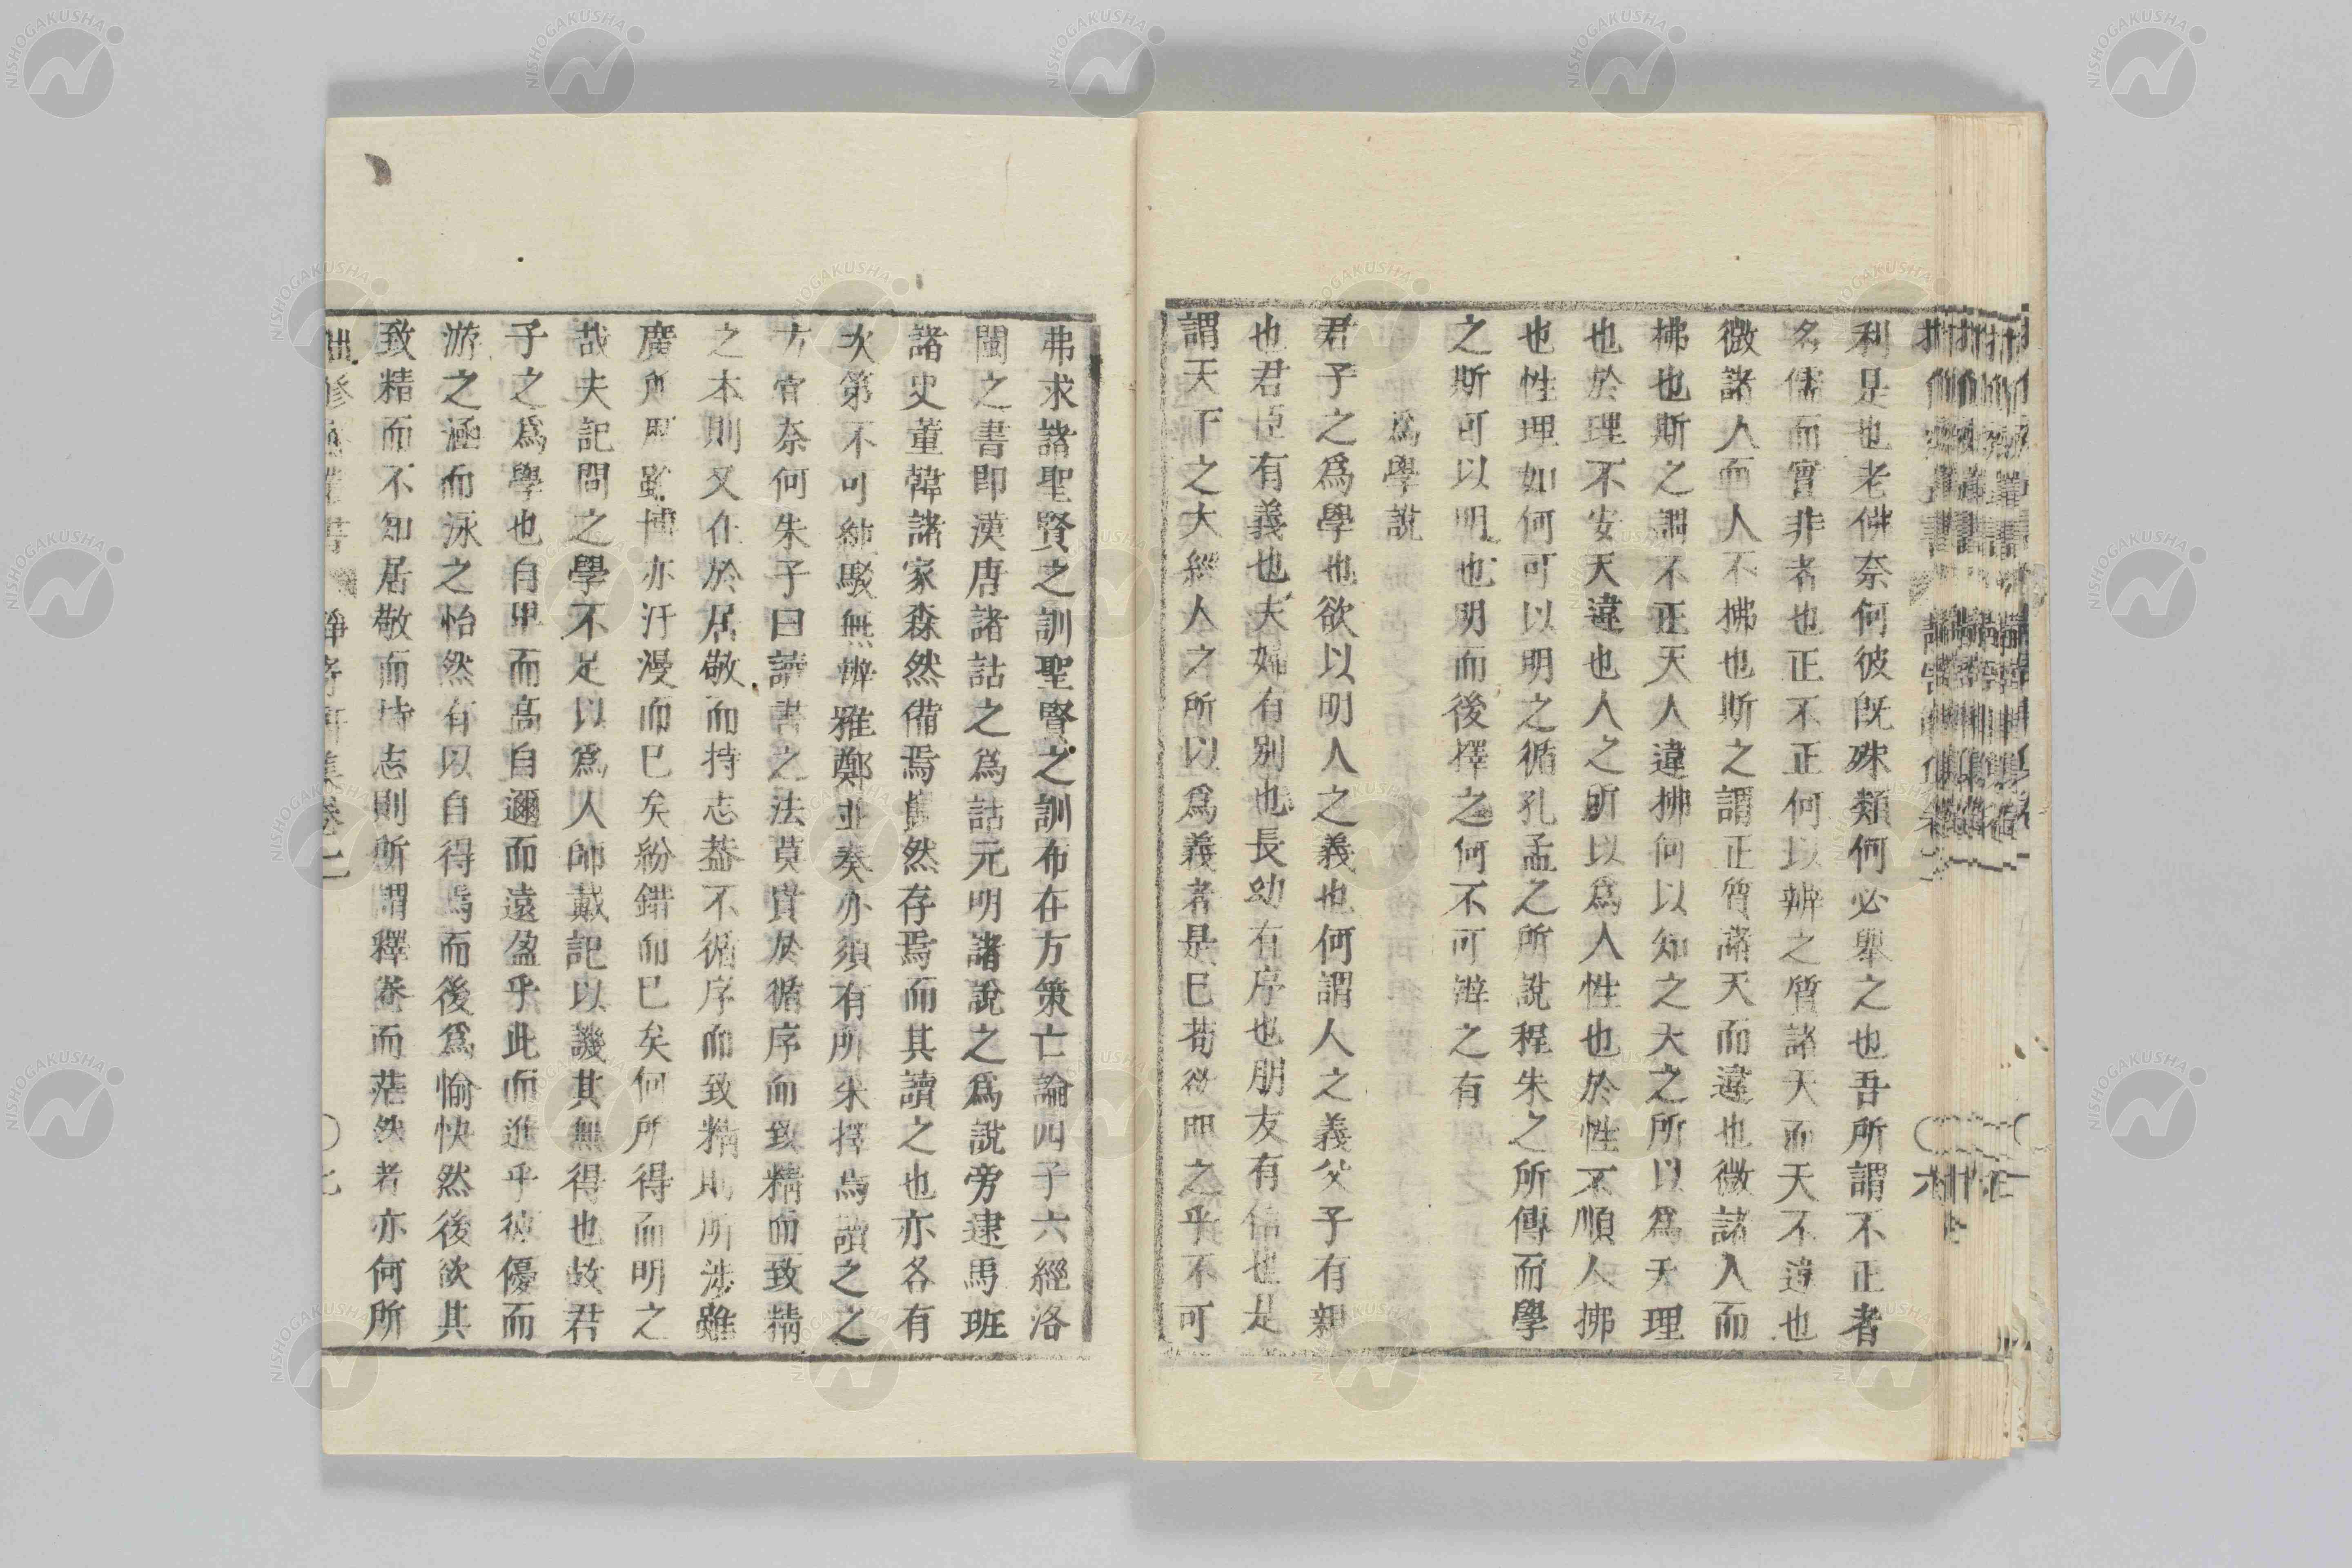 利是也老佛奈何彼既殊類何必舉之也吾所謂不正者
名儒而實非者也正不正何以辨之質諸天而天不違也
徴諸人而人不拂也斯之謂正質諸天而違也徴諸人而
拂也斯之謂不正天人違拂何以知之天之所以爲天理
也於理不安天違也人之所以爲人性也於性不順人拂
也性理如何可以明之循孔孟之所說程朱之所傳而學
之斯可以明也明而後擇之何不可辨之有
爲學說
君子之爲學也欲以明人之義也何謂人之義父子有親
也君臣有義也夫婦有別也長幼有序也朋友有信也是
謂天下之大經人之所以爲義者是已苟欲明之乎不可
弗求諸聖賢之訓聖賢之訓布在方策亡論四子六經洛
閩之書即漢唐諸詁之爲詁元明諸說之爲說旁逮馬班
諸史董韓諸家森然備焉舊然存焉而其讀之也亦各有
次第不可純駁無辨雅鄭並奏亦須有所采擇焉讀之之
方當奈何朱子曰讀書之法莫貴於循序而致精而致精
之本則又在於居敬而持志葢不循序而致精則所涉雖
廣所思雖博亦汗漫而已矣紛錯而已矣何所得而明之
哉夫記問之學不足以爲人師戴記以譏其無得也故君
子之爲學也自卑而高自邇而遠盈乎此而進乎彼優而
游之涵而泳之怡然有以自得焉而後爲愉快然後欲其
致精而不知居敬而持志則所謂釋卷而茫然者亦何所
卷二
NISHOGAKUSHA